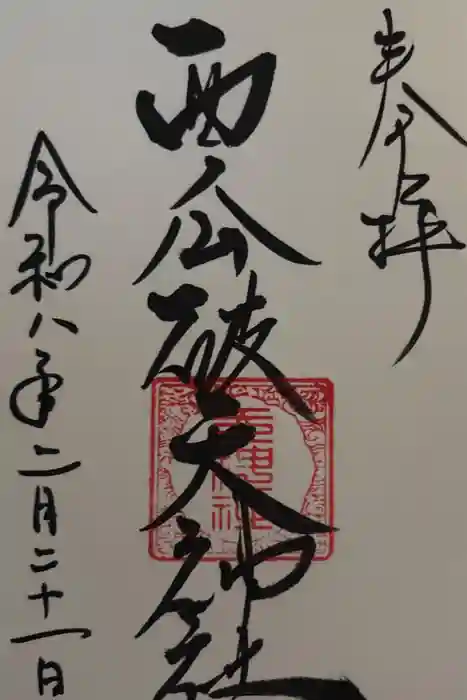 奉拝
西瓜破天神社
令和八年二月二十一日